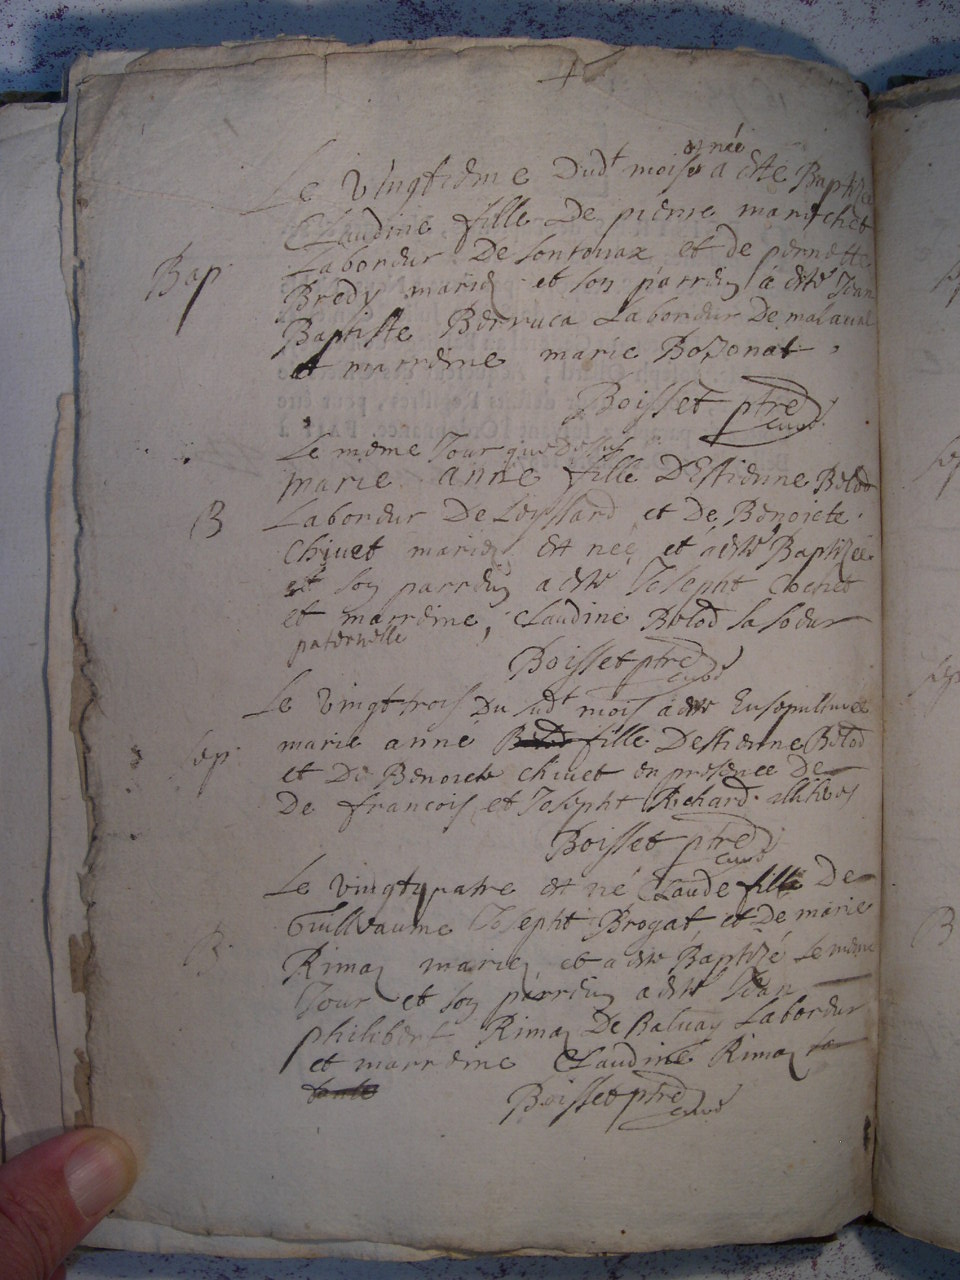 et née
Le vingtieme dudt mois a esté Baptizée
Claudine fille De pierre marichet
Bap Laboreur De Sontonax et de pernette
Bredy mariez et son parrein a esté Jean
Baptiste Berruca Laboreur De malaval
et marreine marie Bozonat
Boisset ptre curé
Le meme Jour que Dessus
marie anne fille D'Estienne Belod
B Laboreur De Leyssard et De Benoiete
Chivet mariez est neé et a esté Baptizée
et son parrein a esté Joseph Cochet
et marreine, Claudine Belod sa soeur
paternelle
Boisset ptre curé
Le vingttrois Du sudt mois a esté Ensepulturée
Sep marie anne fille Destienne Belod
et De Benoiete chivet en presence De
De francois et Joseph Richard
Boisset ptre curé
Le vingtquatre est né Claude De
Guillaume Joseph Brogat et De marie
B. Rimaz mariez et a esté Baptizé Le meme
Jour et son parrein a esté Jean
philibert Rimaz De Balvay Laboreur
et marreine Claudine Rimaz sa
tante
Boisset ptre curé